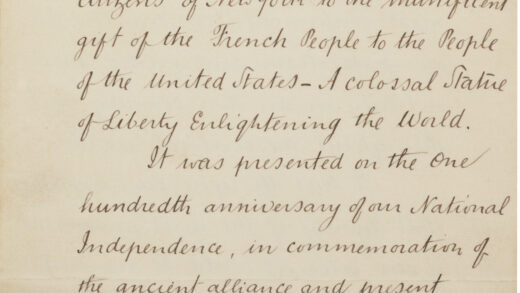 citizens of New York to the munificent
gift of the French People to the People
of the United States – A colossal Statue
of Liberty Enlightening the World.
It was presented on the One
hundredth anniversary of our National
Independence, in commemoration of
the ancient alliance and present